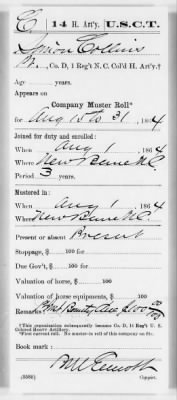 C. | 14 H. Art'y. | U.S.C.T.
Simon Collins
Co. D, 1 Reg't N. C. Col'd H. Art'y.†
Age years.
Appears on
Company Muster Roll*
for Aug 1st to 31, 1864
Joined for duty and enrolled:
When Aug 1, 1864
Where New Berne N.C.
Period 3 years.
Mustered in:
When Aug 1, 1864
Where New Berne N.C.
Present or absent Present
Stoppage, $ 100 for
Due Gov't, $ 100 for
Valuation of horse, $ 100
Valuation of horse equipments, $ 100
Remarks: Bounty due $100 00/100
†This organization subsequently became Co. D, 14 Reg't U. S. Colored Heavy Artillery.
*First carried roll. No muster-in roll of this company on file.
Book mark:
(858b) Copyist.